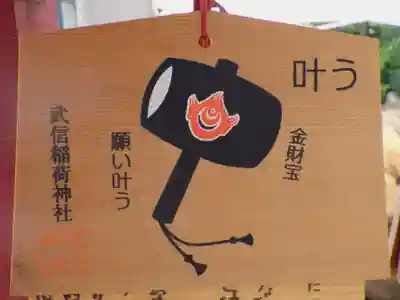 叶う
金財宝
願い叶う
武信稲荷神社